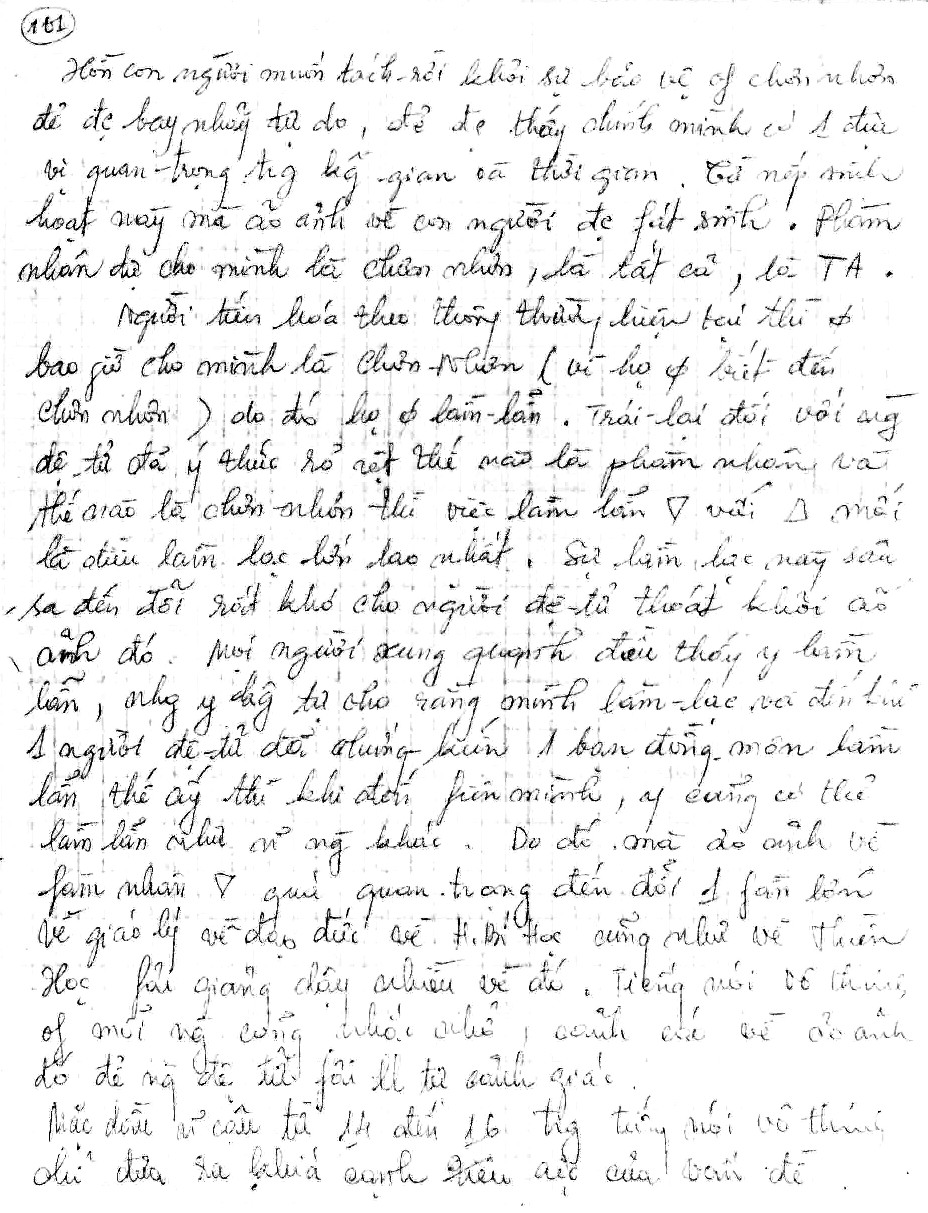 161
Hồn con người muốn tách-rời khỏi sự bảo vệ of chơn nhơn
để đc bay nhảy tự do, để đc thấy chính mình có 1 địa
vị quan-trọng trg kg gian và thời gian. Từ nếp sinh
hoạt này mà ảo ảnh về con người đc fát sinh. Phàm
nhân tự cho mình là chơn nhơn, là tất cả, là TA.
Người tiến hóa theo thông thường hiện tại thì ∅
bao giờ cho mình là Chơn-Nhơn (vì họ ∅ biết đến
chơn nhơn) do đó họ ∅ lầm-lẫn. Trái-lại đối với ng
đệ tử đã ý thức rỏ rệt thế nào là phàm nhân và
thế nào là chơn-nhơn thì việc lầm lẫn ▽ với △ mới
là điều lầm lạc lớn lao nhất. Sự lầm lạc này sâu
sa đến đỗi rất khó cho người đệ-tử thoát khỏi ảo
ảnh đó. Mọi người xung quanh đều thấy y lầm
lẫn, nhg y kg tự cho rằng mình lầm-lạc và đến khi
1 người đệ-tử đã chứng kiến 1 bạn đồng môn lầm
lẫn thế ấy thì khi đến fiên mình, y cũng có thể
lầm lẫn như ~ ng khác. Do đó mà ảo ảnh về
fàm nhân ▽ quá quan-trọng đến đỗi 1 fần lớn
về giáo lý về đạo đức về H. Bí Học cũng như về Thiền
Học fải giảng dậy nhiều về đó. Tiếng nói vô thinh
of mỗi ng cũng nhắc nhở, cảnh cáo về ảo ảnh
đó để ng đệ tử fải tự cảnh giác.
Mặc dầu ~ câu từ 14 đến 16 trg tiếng nói vô thinh
chỉ đưa ra khía cạnh tiêu cực của vấn đề